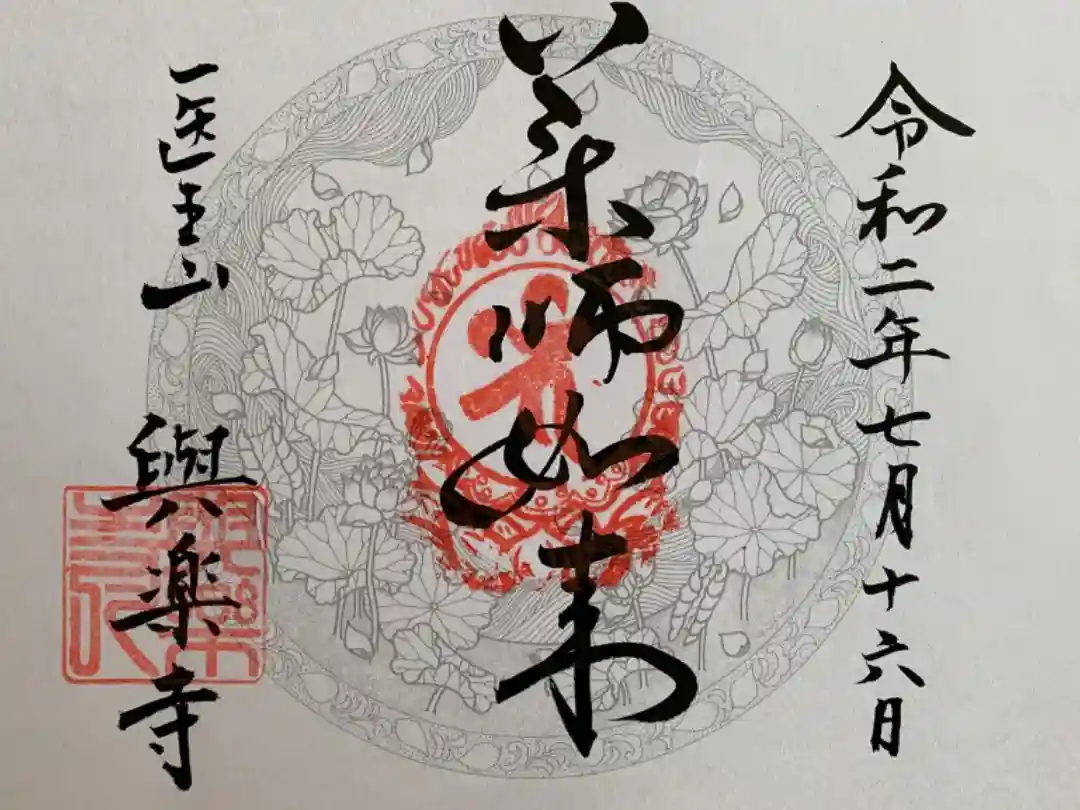 令和二年七月十六日
薬師如来
医王山
與楽寺